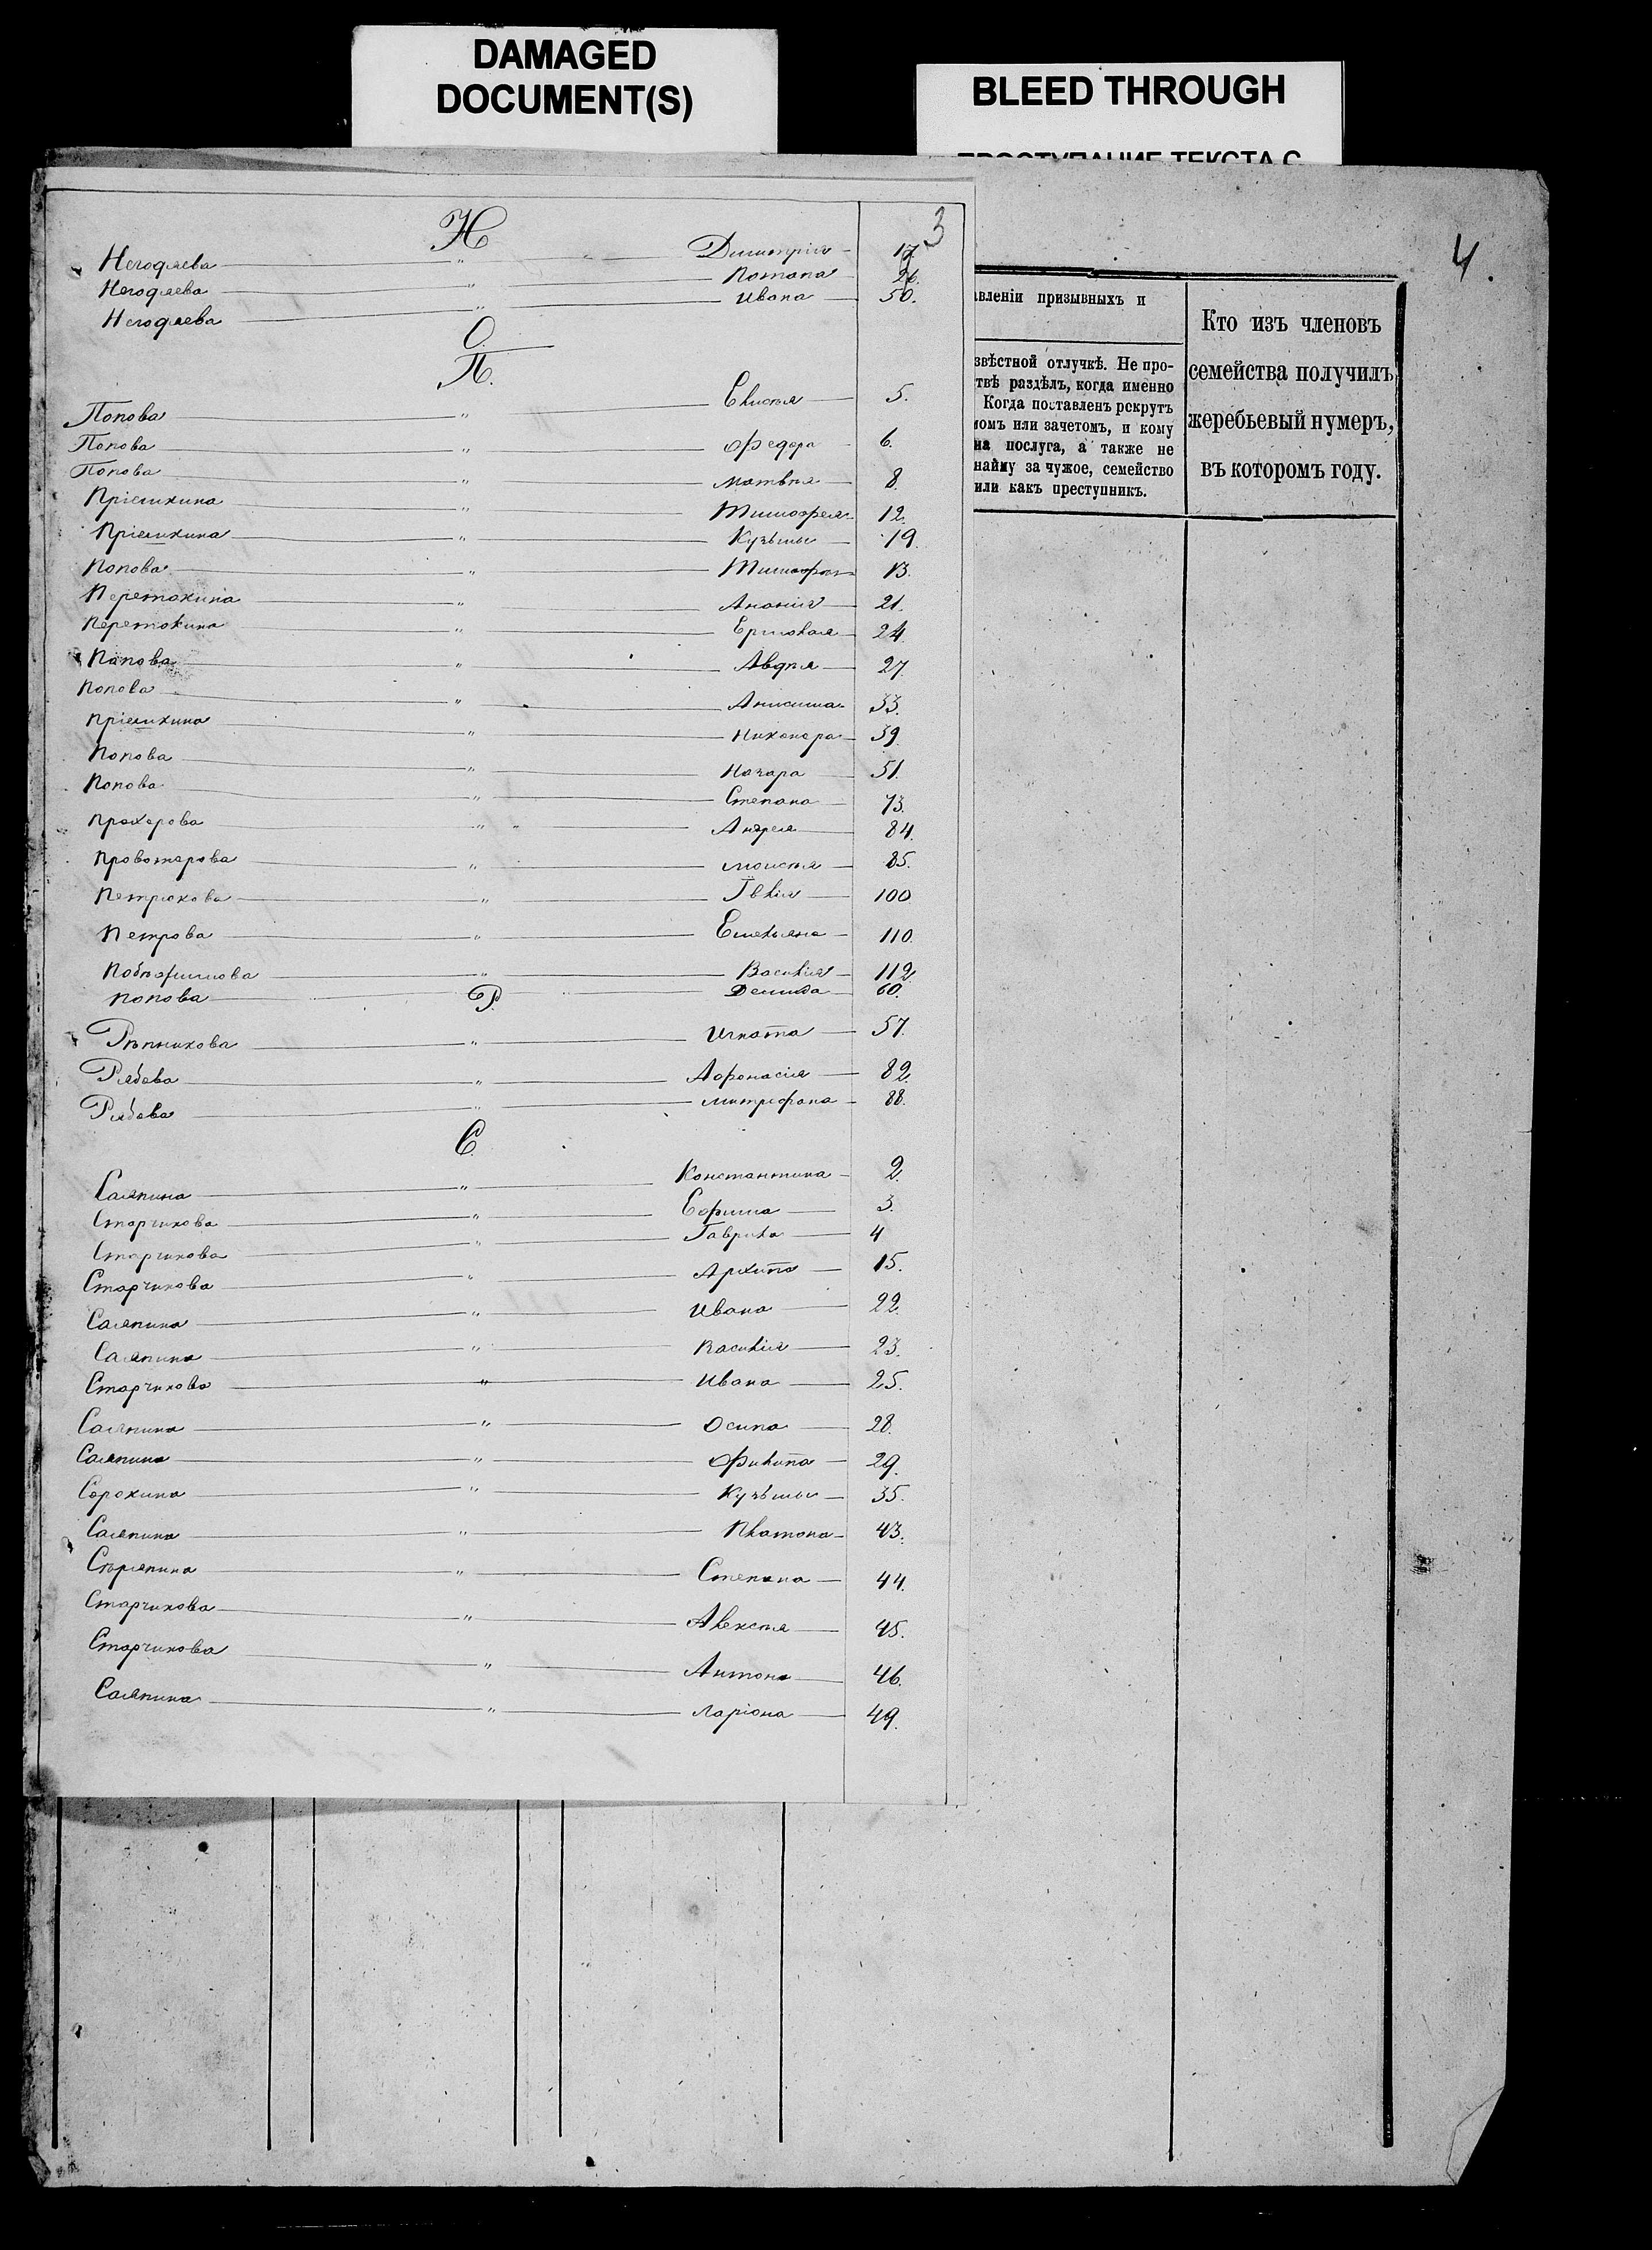 DAMAGED
DOCUMENT(S)
BLEED THROUGH
ПРОСТУПАНИЕ ТЕКСТА С
3
4.
Н
Негодяева " Димитрія 17.
Негодяева " Потапа 26.
Негодяева " Ивана 50.
О.
П.
Попова " 5.
Попова " Федора 6.
Попова " Матвѣя 8.
Пріемихина " Тимофея 12.
Пріемихина " Кузьмы 19.
Попова " Тимофея 13.
Перетокина " Ананія 21.
Перетокина " Ермолая 24.
Попова " Авдѣя 27.
Попова " Анисима 33.
Пріемихина " Никанора 39.
Попова " Назара 51.
Попова " Степана 73.
Прохорова " " Андрея 84.
Провоторова " Моисѣя 85.
Петрюкова " 100
Петрова " Емельяна 110.
" Василія 112.
Попова Демида 60.
Р.
Рѣпникова " Игната 57.
Рябова " Афонасія 82.
Рябова " Митрофана 88.
С
Саляпина " Константина 2.
Старчикова " Ефима 3.
Старчикова " Гаврила 4
Старчикова " Архипа 15.
Саляпина " Ивана 22.
Саляпина " Василія 23.
Старчикова " Ивана 25.
Саляпина " Осипа 28.
Саляпина " Филипа 29.
Сорокина " Кузьмы 35.
Саляпина " Платона 43.
" Степана 44.
Старчикова " Алексѣя 45.
Старчикова " Антона 46.
Саляпина " Ларіона 49.
авленіи призывныхъ и
звѣстной отлучкѣ. Не про-
твѣ раздѣлъ, когда именно
Когда поставленъ рекрутъ
омъ или зачетомъ, и кому
на послуга, а также не
найму за чужое, семейство
или какъ преступникъ.
Кто изъ членовъ
семейства получилъ
жеребьевый нумеръ,
въ которомъ году.